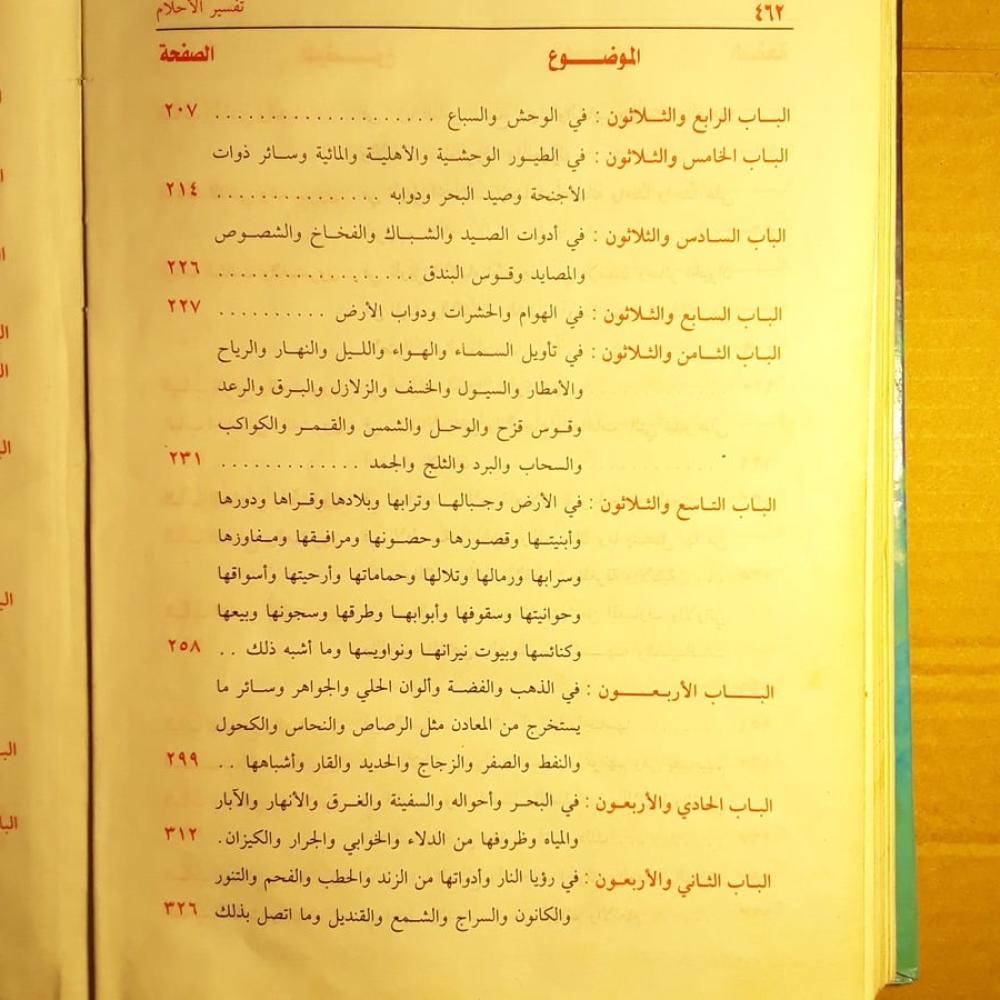 ٤٦٢ تفسير الأحلام
الموضوع الصفحة
الباب الرابع والثلاثون : في الوحش والسباع . . . . . . . . . . . . . . . . . . . . ٢٠٧
الباب الخامس والثلاثون : في الطيور الوحشية والأهلية والمائية وسائر ذوات
الأجنحة وصيد البحر ودوابه . . . . . . . . . . . . . . . ٢١٤
الباب السادس والثلاثون : في أدوات الصيد والشباك والفخاخ والشصوص
والمصايد وقوس البندق . . . . . . . . . . . . . . . . . . ٢٢٦
الباب السابع والثلاثون : في الهوام والحشرات ودواب الأرض . . . . . . . . . . ٢٢٧
الباب الثامن والثلاثون : في تأويل السماء والهواء والليل والنهار والرياح
والأمطار والسيول والخسف والزلازل والبرق والرعد
وقوس قزح والوحل والشمس والقمر والكواكب
والسحاب والبرد والثلج والجمد . . . . . . . . . . . . . ٢٣١
الباب التاسع والثلاثون : في الأرض وجبالها وترابها وبلادها وقراها ودورها
وأبنيتها وقصورها وحصونها ومرافقها ومفاوزها
وسرابها ورمالها وتلالها وحماماتها وأرحيتها وأسواقها
وحوانيتها وسقوفها وأبوابها وطرقها وسجونها وبيعها
وكنائسها وبيوت نيرانها ونواويسها وما أشبه ذلك . . ٢٥٨
الباب الأربعون : في الذهب والفضة وألوان الحلي والجواهر وسائر ما
يستخرج من المعادن مثل الرصاص والنحاس والكحول
والنفط والصفر والزجاج والحديد والقار وأشباهها . . ٢٩٩
الباب الحادي والأربعون : في البحر وأحواله والسفينة والغرق والأنهار والآبار
والمياه وظروفها من الدلاء والخوابي والجرار والكيزان. ٣١٢
الباب الثاني والأربعون : في رؤيا النار وأدواتها من الزند والحطب والفحم والتنور
والكانون والسراج والشمع والقنديل وما اتصل بذلك ٣٢٦